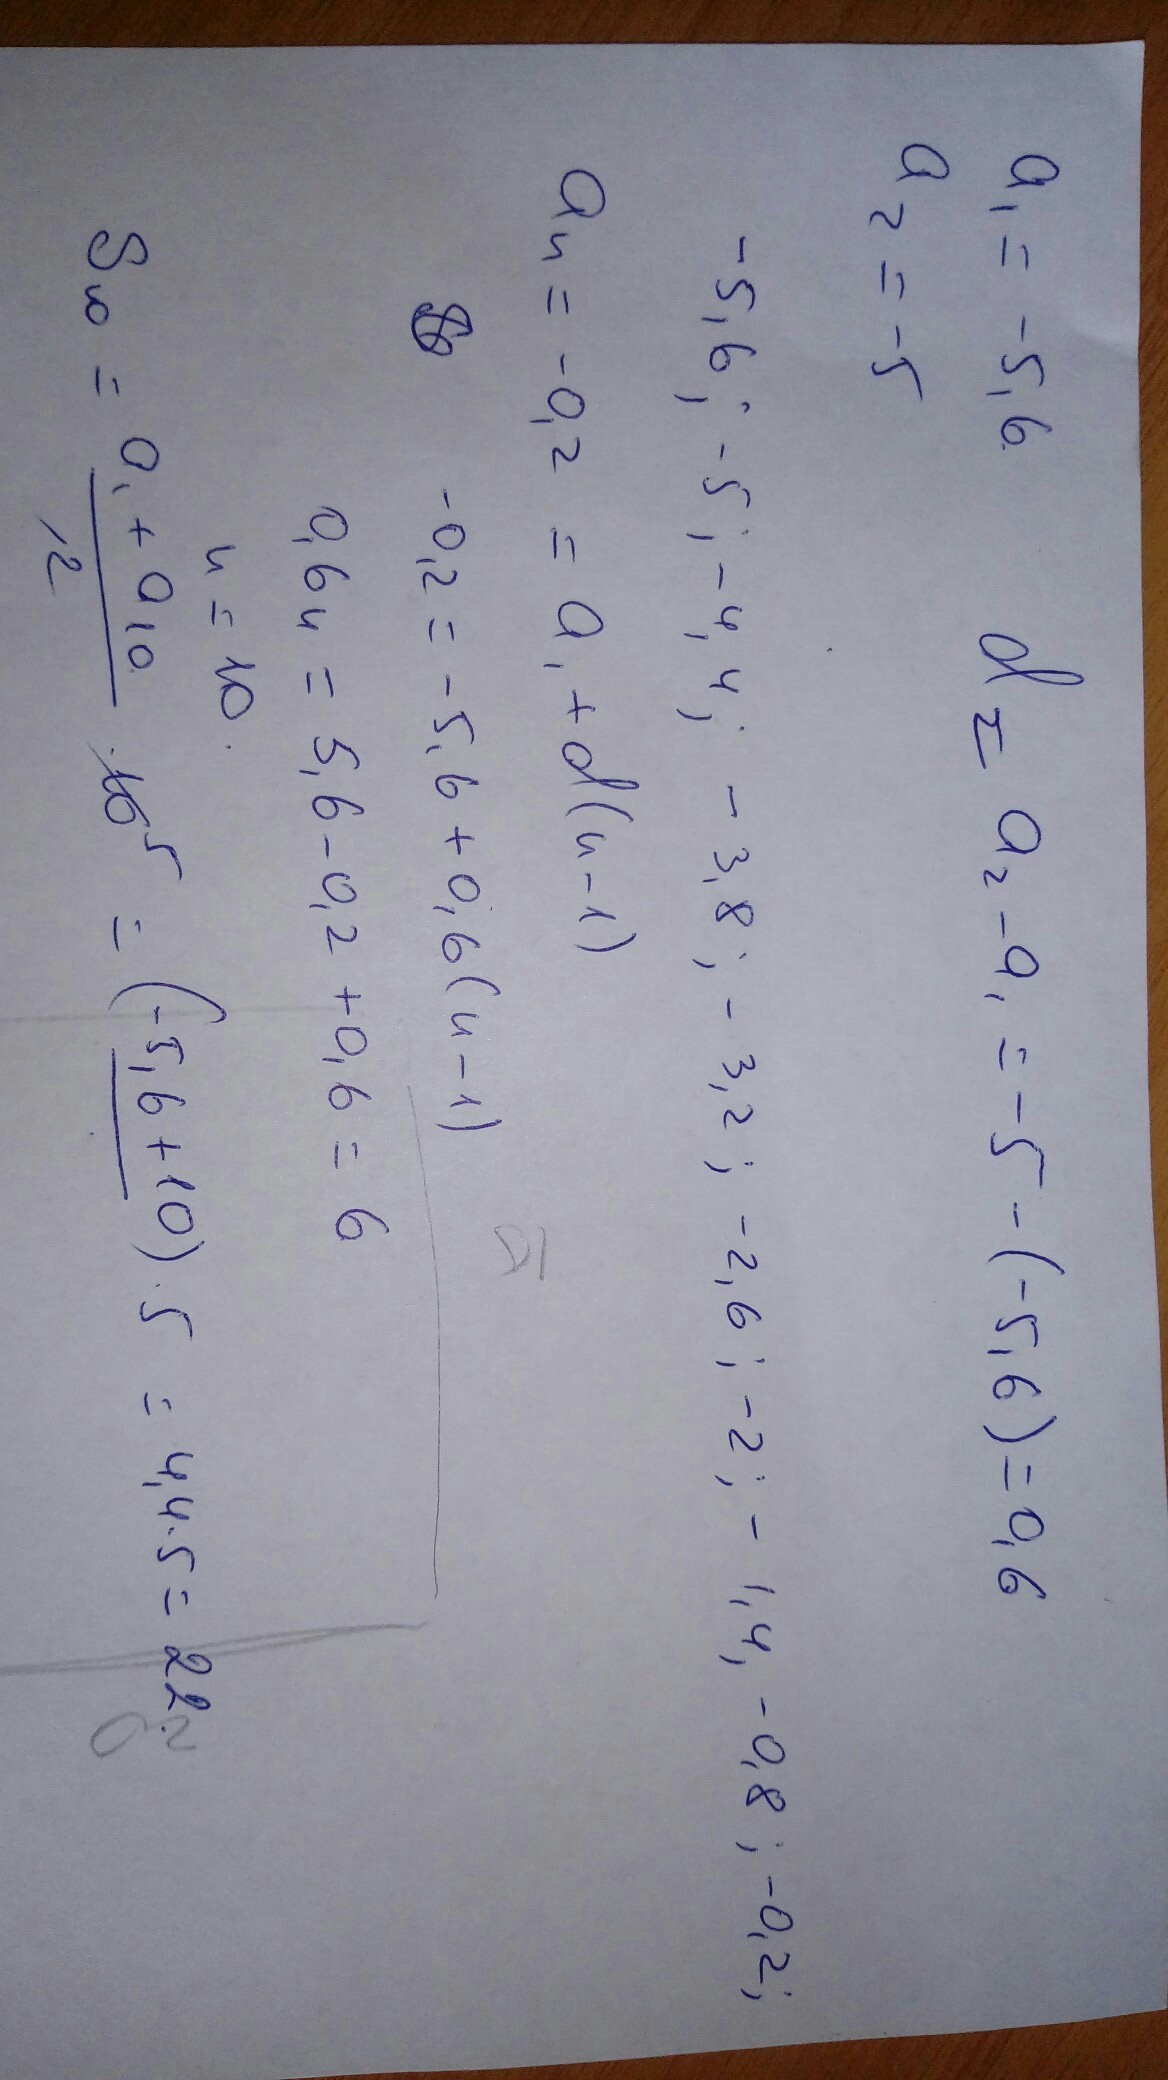 a₁ = -5,6 d = a₂ - a₁ = -5 - (-5,6) = 0,6
a₂ = -5
-5,6; -5; -4,4; -3,8; -3,2; -2,6; -2; -1,4, -0,8; -0,2;
aₙ = -0,2 = a₁ + d(n-1)
-0,2 = -5,6 + 0,6(n-1)
0,6n = 5,6 - 0,2 + 0,6 = 6
n = 10.
S₁₀ = (a₁ + a₁₀)/2 · 10 5 = (-5,6 + 10) · 5 = 4,4 · 5 = 22